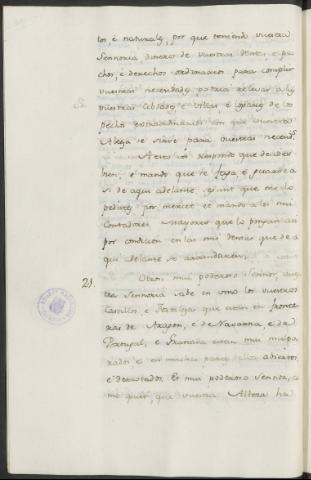 tos é naturales, por que teniendo vuestra
Sennoria dineros de vuestras rentas é pe-
chos, é derechos ordinarios para complir
vuestras necesidades podria relevar a las
vuestras Cibdades é Villas é logares de los
pechos extraordinarios con que vuestra
Alteza se sirve para vuestras necesid.s
A esto vos respondo que decides
bien, é mando que se faga é guarde a
si de aqui adelante, segunt que me lo
pedistes, por merced, et mando a los mis
Contadores mayores que lo pongan asi
por condicion en las mis rentas que de a
qui adelante se arrendaren.
21. Otrosi, mui poderoso Sennor, vues
tra Sennoria sabe en como los vuestros
Castillos, é Fortalezas que estan en fronte
ras de Aragon, é de Navarra, é de
Portugal, é Granada estan mui mal repa
rados, é en muchas partes dellos abiertos,
é derrocados. Et mui poderoso Sennor, co
mo quier que vuestra Alteza ha